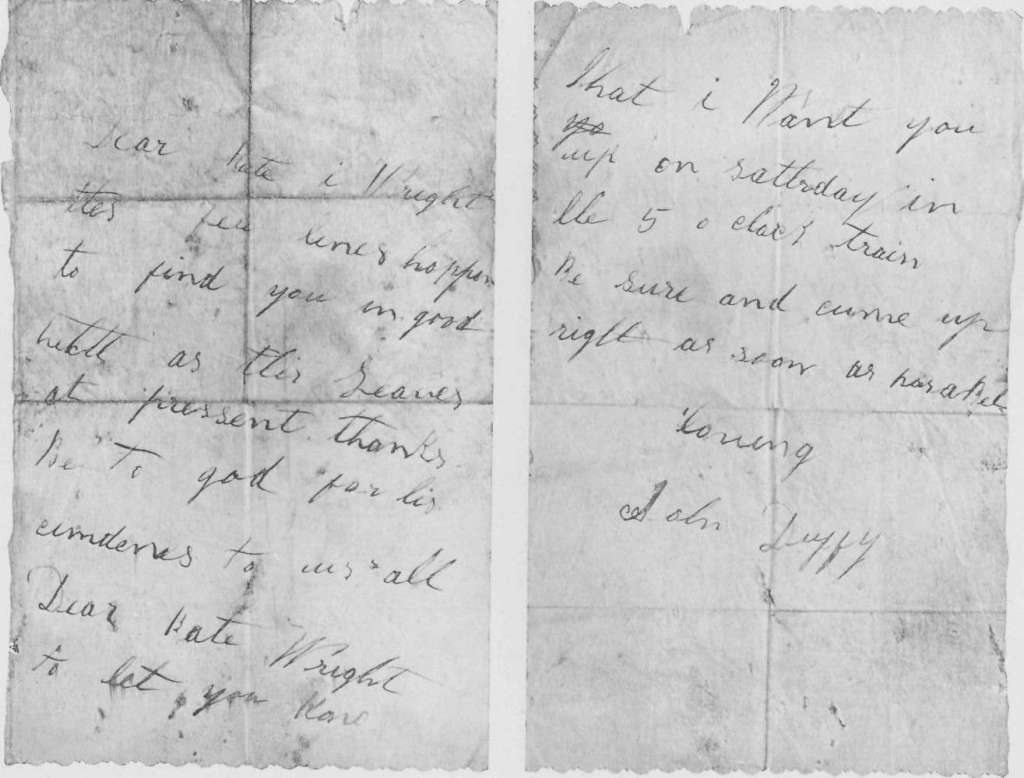 Dear Kate i Wright
thes few lines hoppen
to find you in good
helth as this Leaves
at pressent thanks
Be To god for his
cumdenes to us all
Dear Kate Wright
to let you know
that i Want you
yo
up on satterday in
the 5 o clock train
Be sure and cume up
right as soon as posabel
Loveing
John Duffy